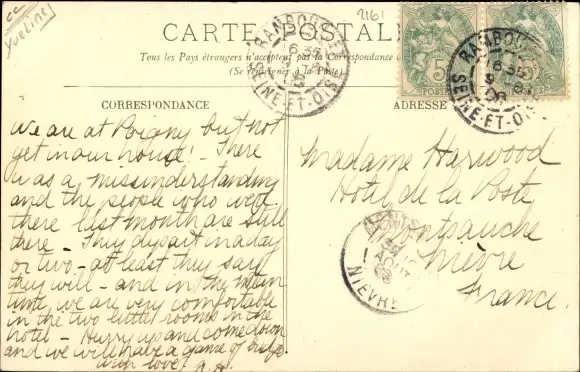 CC
Yvelines
2161
CARTE POSTALE
Tous les Pays étrangers n'acceptent pas la Correspondance
(Se renseigner à la Poste)
RAMBOUILLET
6 35
SEINE-ET-OISE
5
POSTES
RAMBOUILLET
6 35
SEINE-ET-OISE
CORRESPONDANCE
ADRESSE
We are at Poigny but not
yet in our house! - There
was a misunderstanding
and the people who were
there last month are still
there - They depart in a day
or two - at least they say
they will - and in the mean
time we are very comfortable
in the two little rooms in the
hotel - Hurry up and come down
and we will have a game of bridge
with love
Madame Harwood
Hotel de la Poste
Montsauche
Nièvre
France.
AOUT
NIEVRE